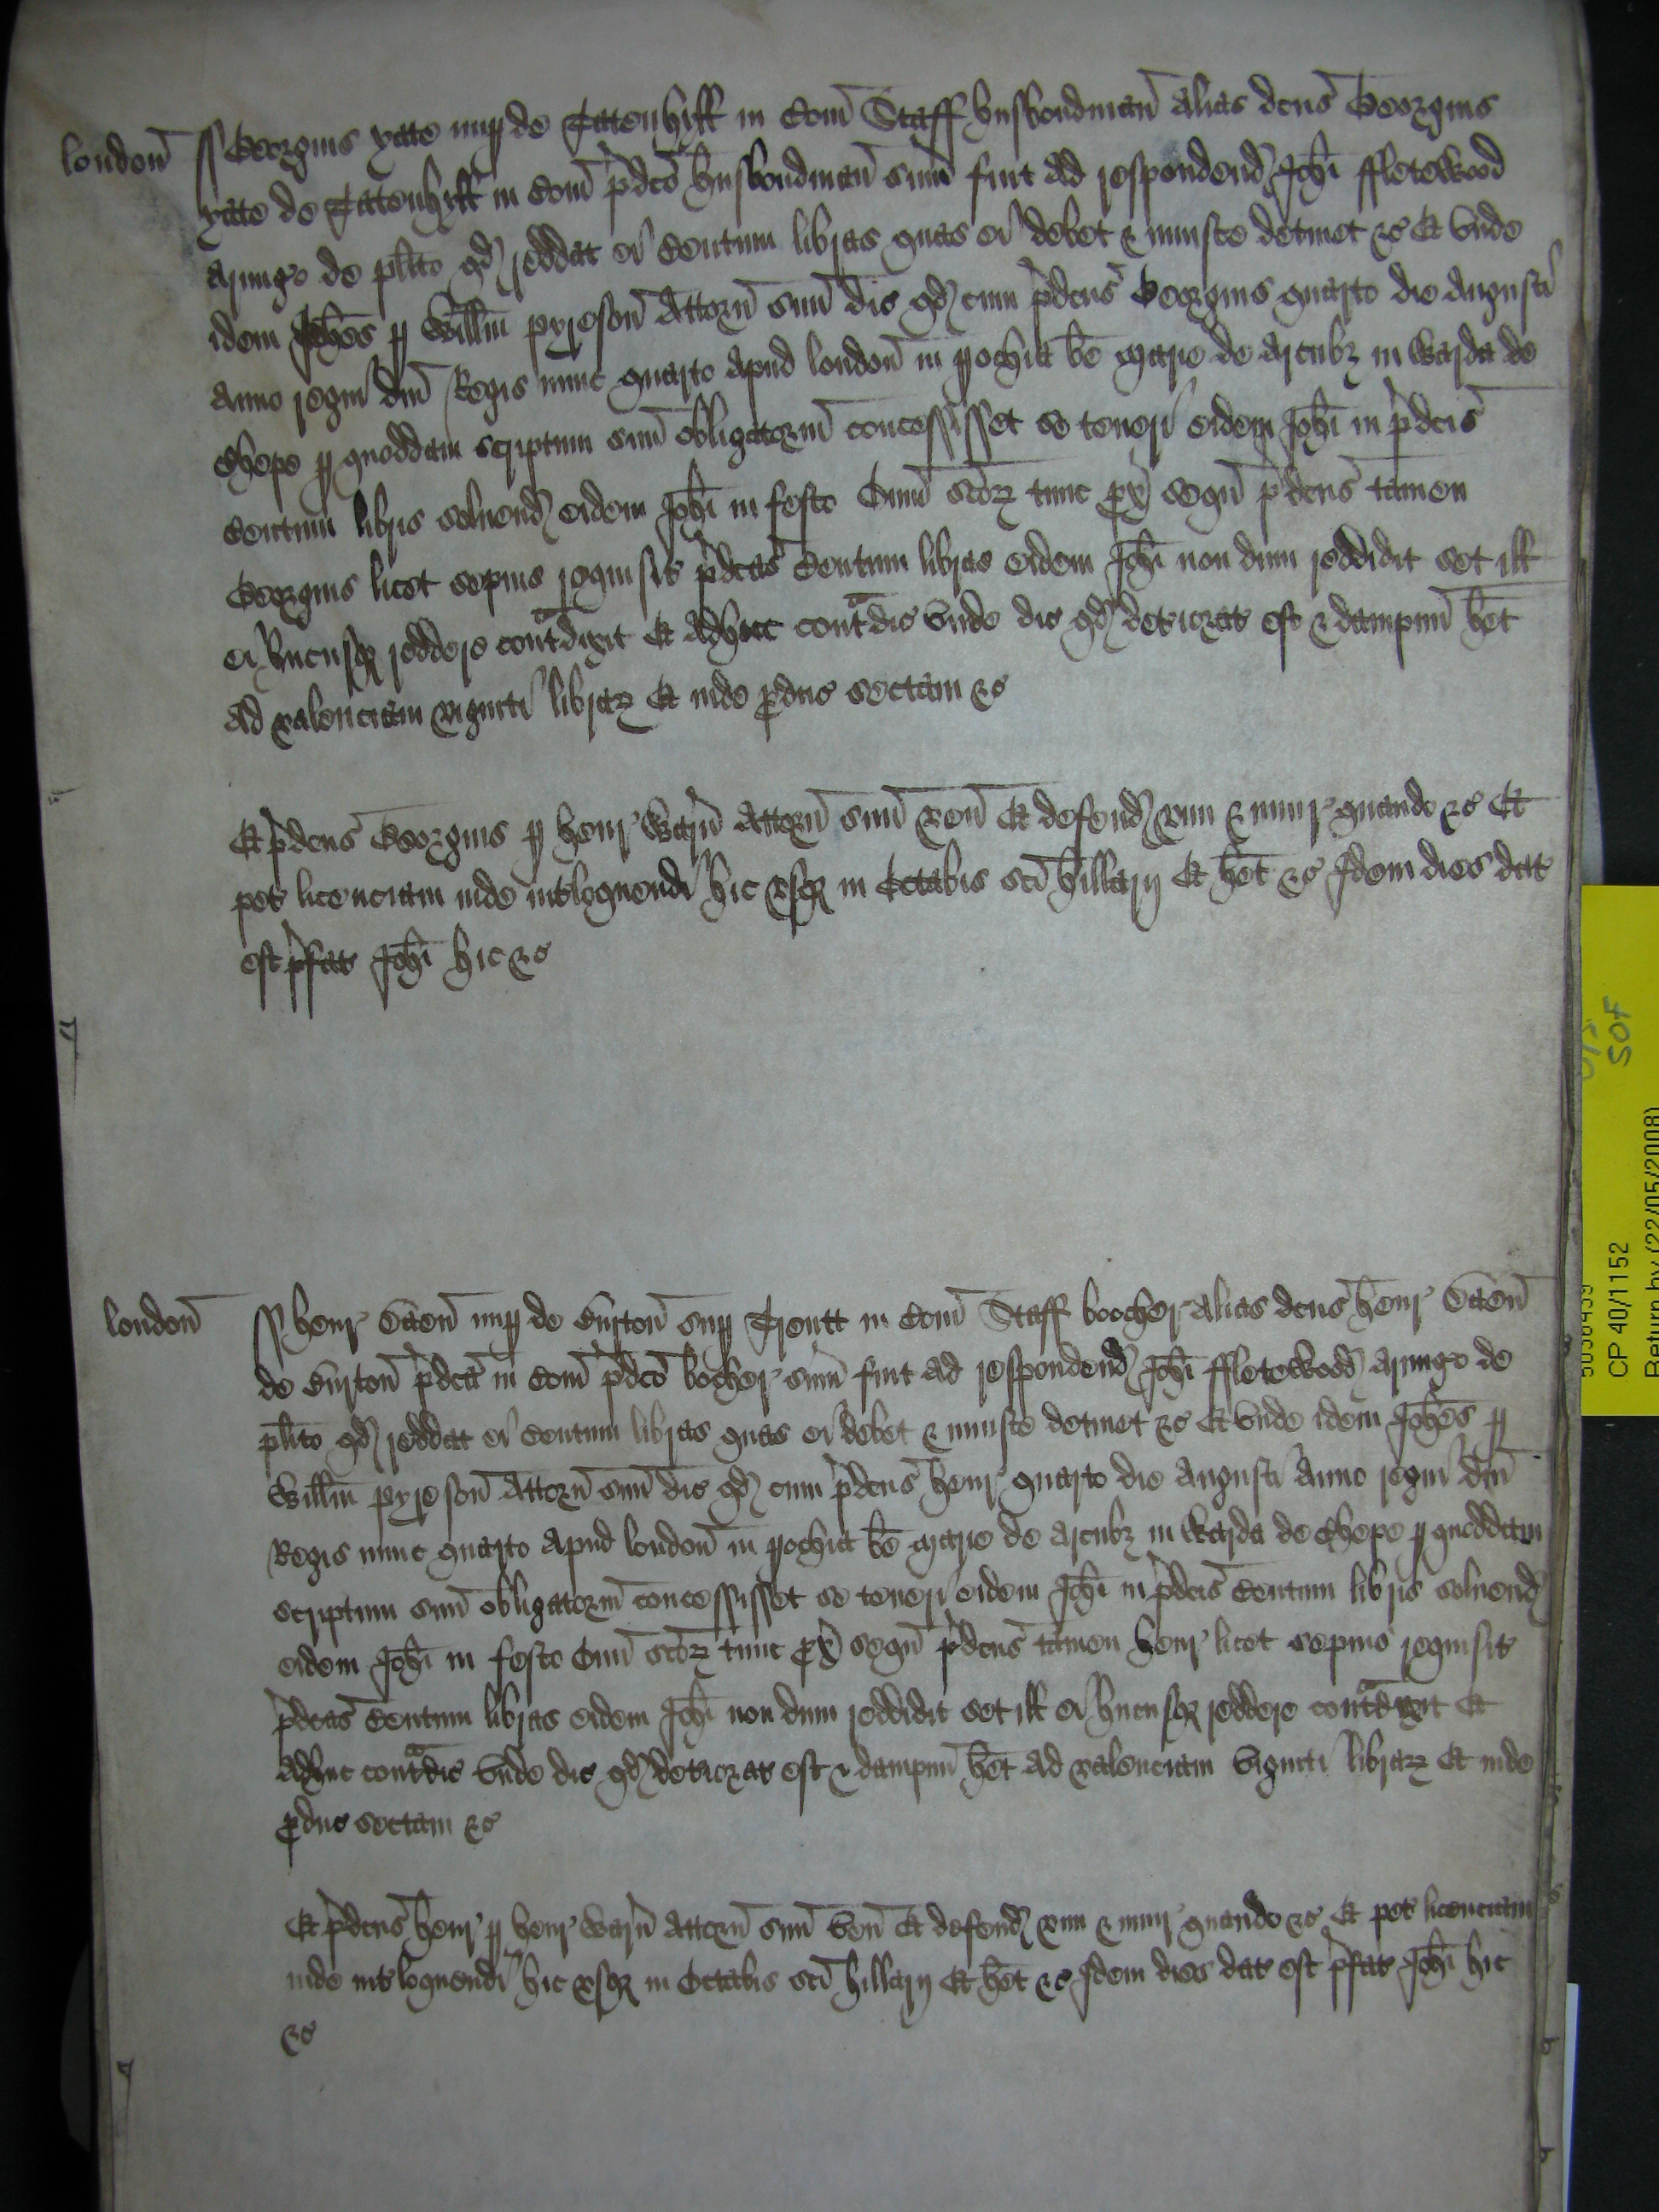 london̄ ss Georgius yate nup de Tatenhill in Com̄ Staff husbondman̄ alias dcūs Georgius
yate de Tatenhill in Com̄ p̄dcō husbondman̄ sum̄ fuit ad respondend Joh̄i ffletewood
Armigo de pl̄ito qd reddat ei Centum libras quas ei debet & iniuste detinet &c Et vnde
idem Joh̄es p Willm̄ pyreson̄ Attorn̄ suū dic qd cum p̄dcūs Georgius quarto die Augusti
Anno regni dnī Regis nunc quarto apud london̄ in pochia bē marie de Arcubȝ in Warda de
Chepe p quoddam scriptum suū obligatoriū concessisset se teneri eidem Joh̄i in p̄dcīs
Centum libris soluend eidem Joh̄i in festo Omī scōrȝ tunc px̄ sequn̄ p̄dcūs tamen
Georgius licet sepius requisit p̄dcās Centum libras eidem Joh̄i non dum reddidit set ill
ei hucusqȝ reddere contᵃdixit Et adhuc contᵃdic vnde dic qd deteriorat est & dampnū h̄et
ad valenciam viginti librarȝ Et inde pduc sectam &c
Et p̄dcūs Georgius p henr Warn̄ Attorn̄ suū ven̄ Et defend vim & iniur quando &c Et
pet licenciam inde int̄loquendi hic vsqȝ in Octabis scī hillarij Et h̄et &c Idem dies dat
est p̄fat Joh̄i hic &c
london̄ ss henr Oden̄ nup de Burton̄ sup Trentt in Com̄ Staff boocher alias dcūs henr Oden̄
de Burton̄ p̄dcā in Com̄ p̄dcō bocher sum̄ fuit ad respondend Joh̄i ffletewood Armigo de
pl̄ito qd reddat ei Centum libras quas ei debet & iniuste detinet &c Et vnde idem Joh̄es p
Willm̄ pyreson̄ Attorn̄ suū dic qd cum p̄dcūs henr quarto die Augusti Anno regni dnī
Regis nunc quarto apud london̄ in pochia bē marie de Arcubȝ in Warda de Chepe p quoddam
scriptum suū obligatoriū concessisset se teneri eidem Joh̄i in p̄dcīs Centum libris soluend
eidem Joh̄i in festo Omī scōrȝ tunc px̄ sequn̄ p̄dcūs tamen henr licet sepius requisit
p̄dcās Centum libras eidem Joh̄i non dum reddidit set ill ei hucusqȝ reddere contᵃdixit Et
adhuc contᵃdic vnde dic qd deteriorat est & dampnū h̄et ad valenciam viginti librarȝ Et inde
pduc sectam &c
Et p̄dcūs henr p henr Warn̄ Attorn̄ suū ven̄ Et defend vim & iniur quando &c Et pet licenciam
inde int̄loquendi hic vsqȝ in Octabis scī hillarij Et h̄et &c Idem dies dat est p̄fat Joh̄i hic
&c
SOF
CP 40/1152
Return by (22/05/2008)